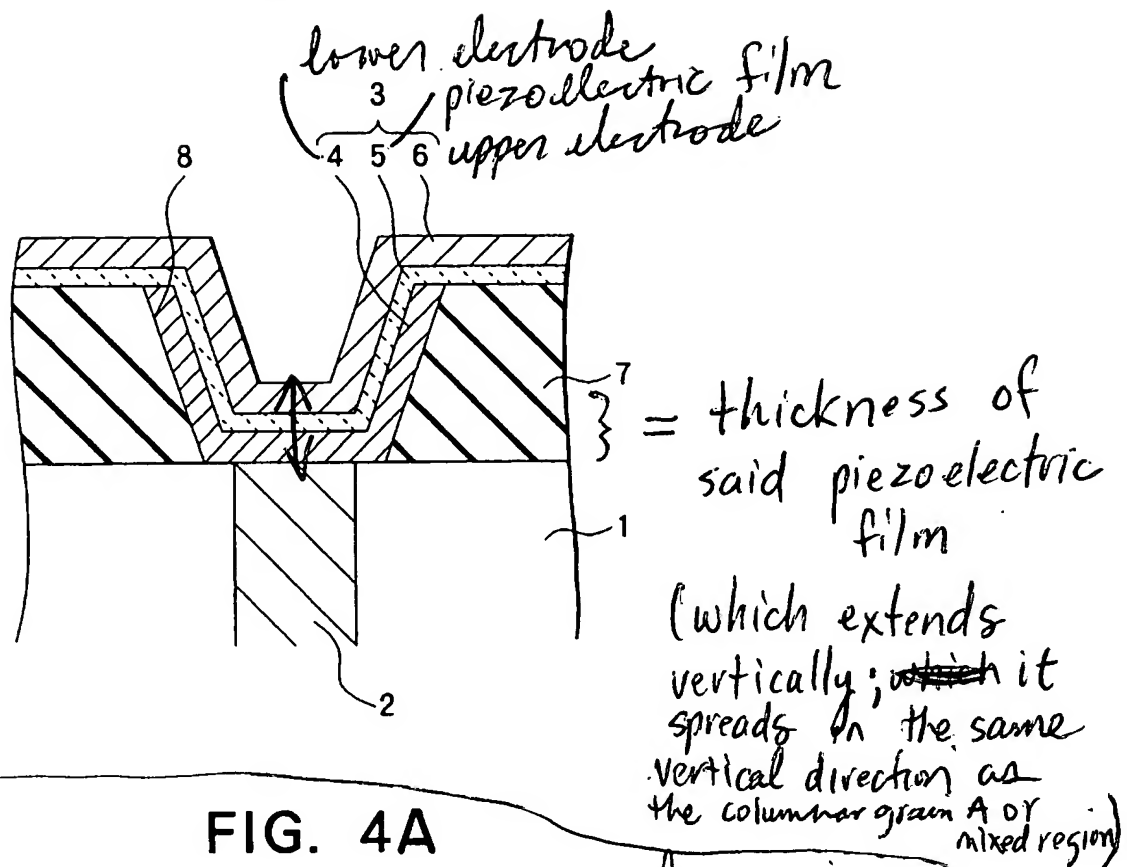 lower electrode
piezoelectric film
3
4 5 6 upper electrode
8
7
} = thickness of
said piezoelectric
film
1
(which extends
vertically; it
spreads in the same
vertical direction as
the columnar grain A or
mixed region)
2
FIG. 4A